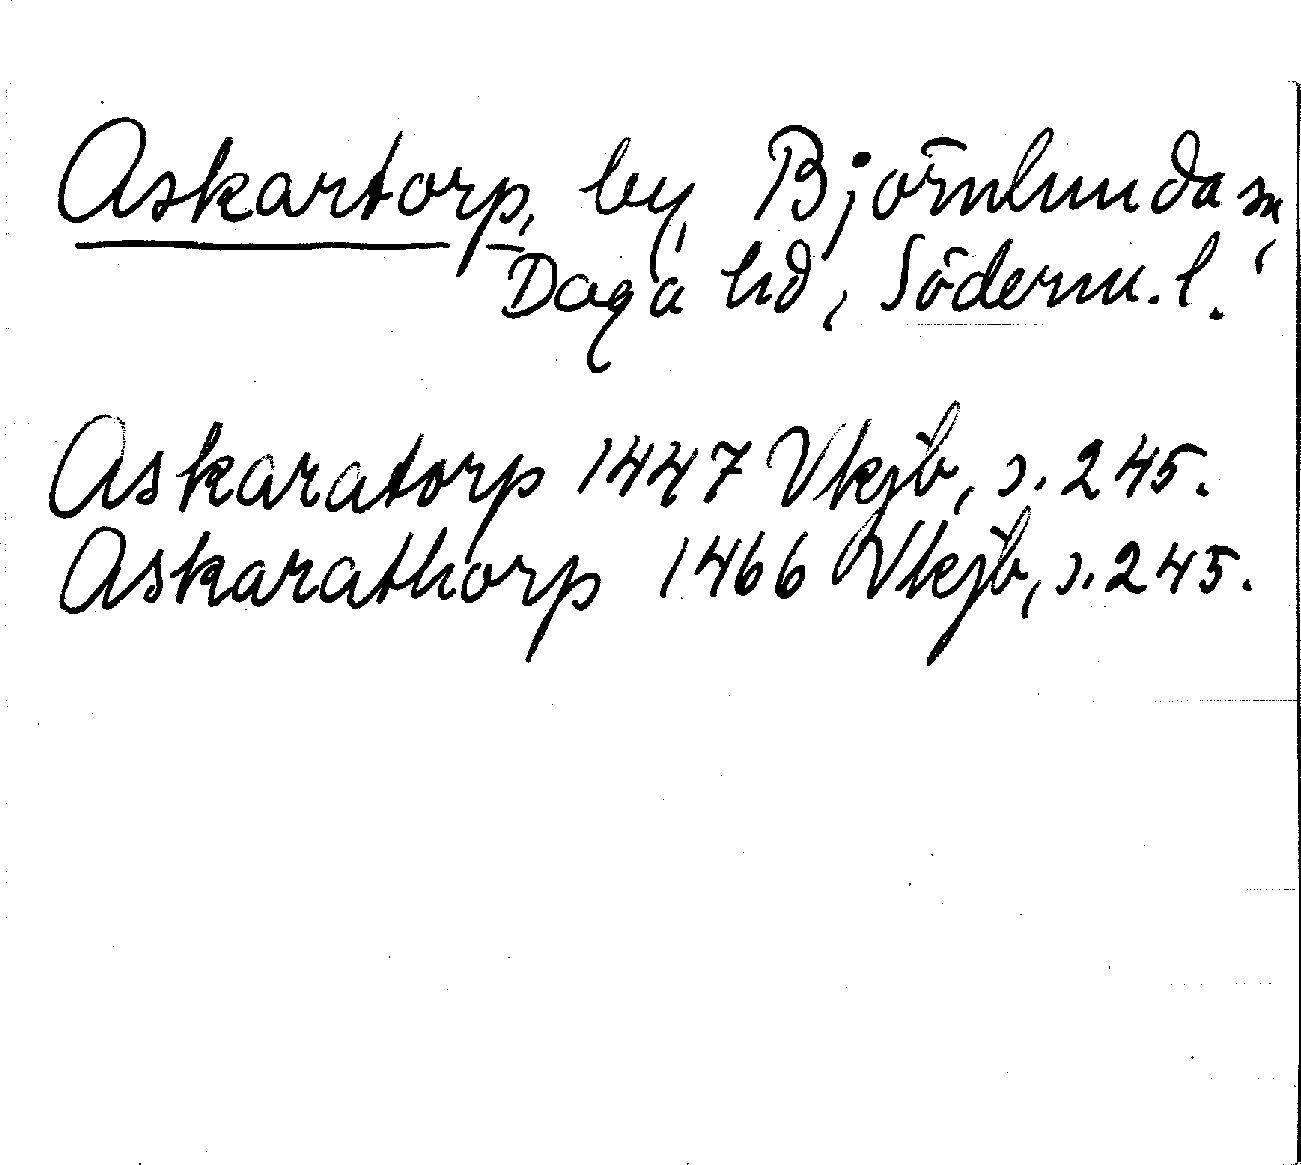 Askartorp, by, Björnlunda sn,
Daga hd, Söderm. l.
Askaratorp 1447 Vkjb, s. 245.
Askarathorp 1466 Vkjb, s. 245.